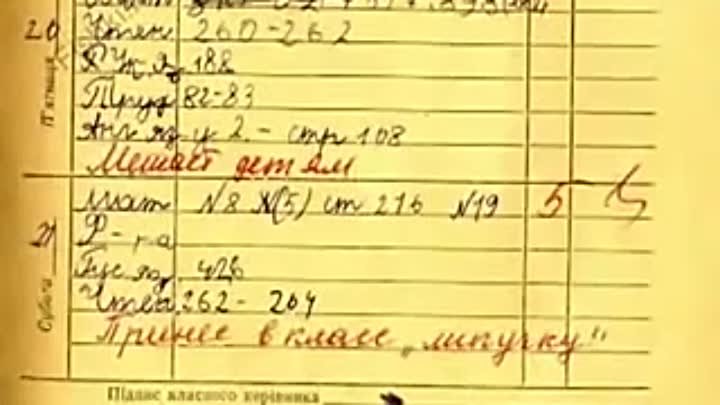 20
П'ятниця
Чтен 260-262
Р у яз 188
Труд 82-83
Анг яз у 2. - стр 108
Мешает детям
21
Субота
Мат №8 №(5) ст 216 №19 5
Ф-ра
Рус яз 426
Чтен 262- 264
Принес в класс „липучку"
Підпис класного керівника